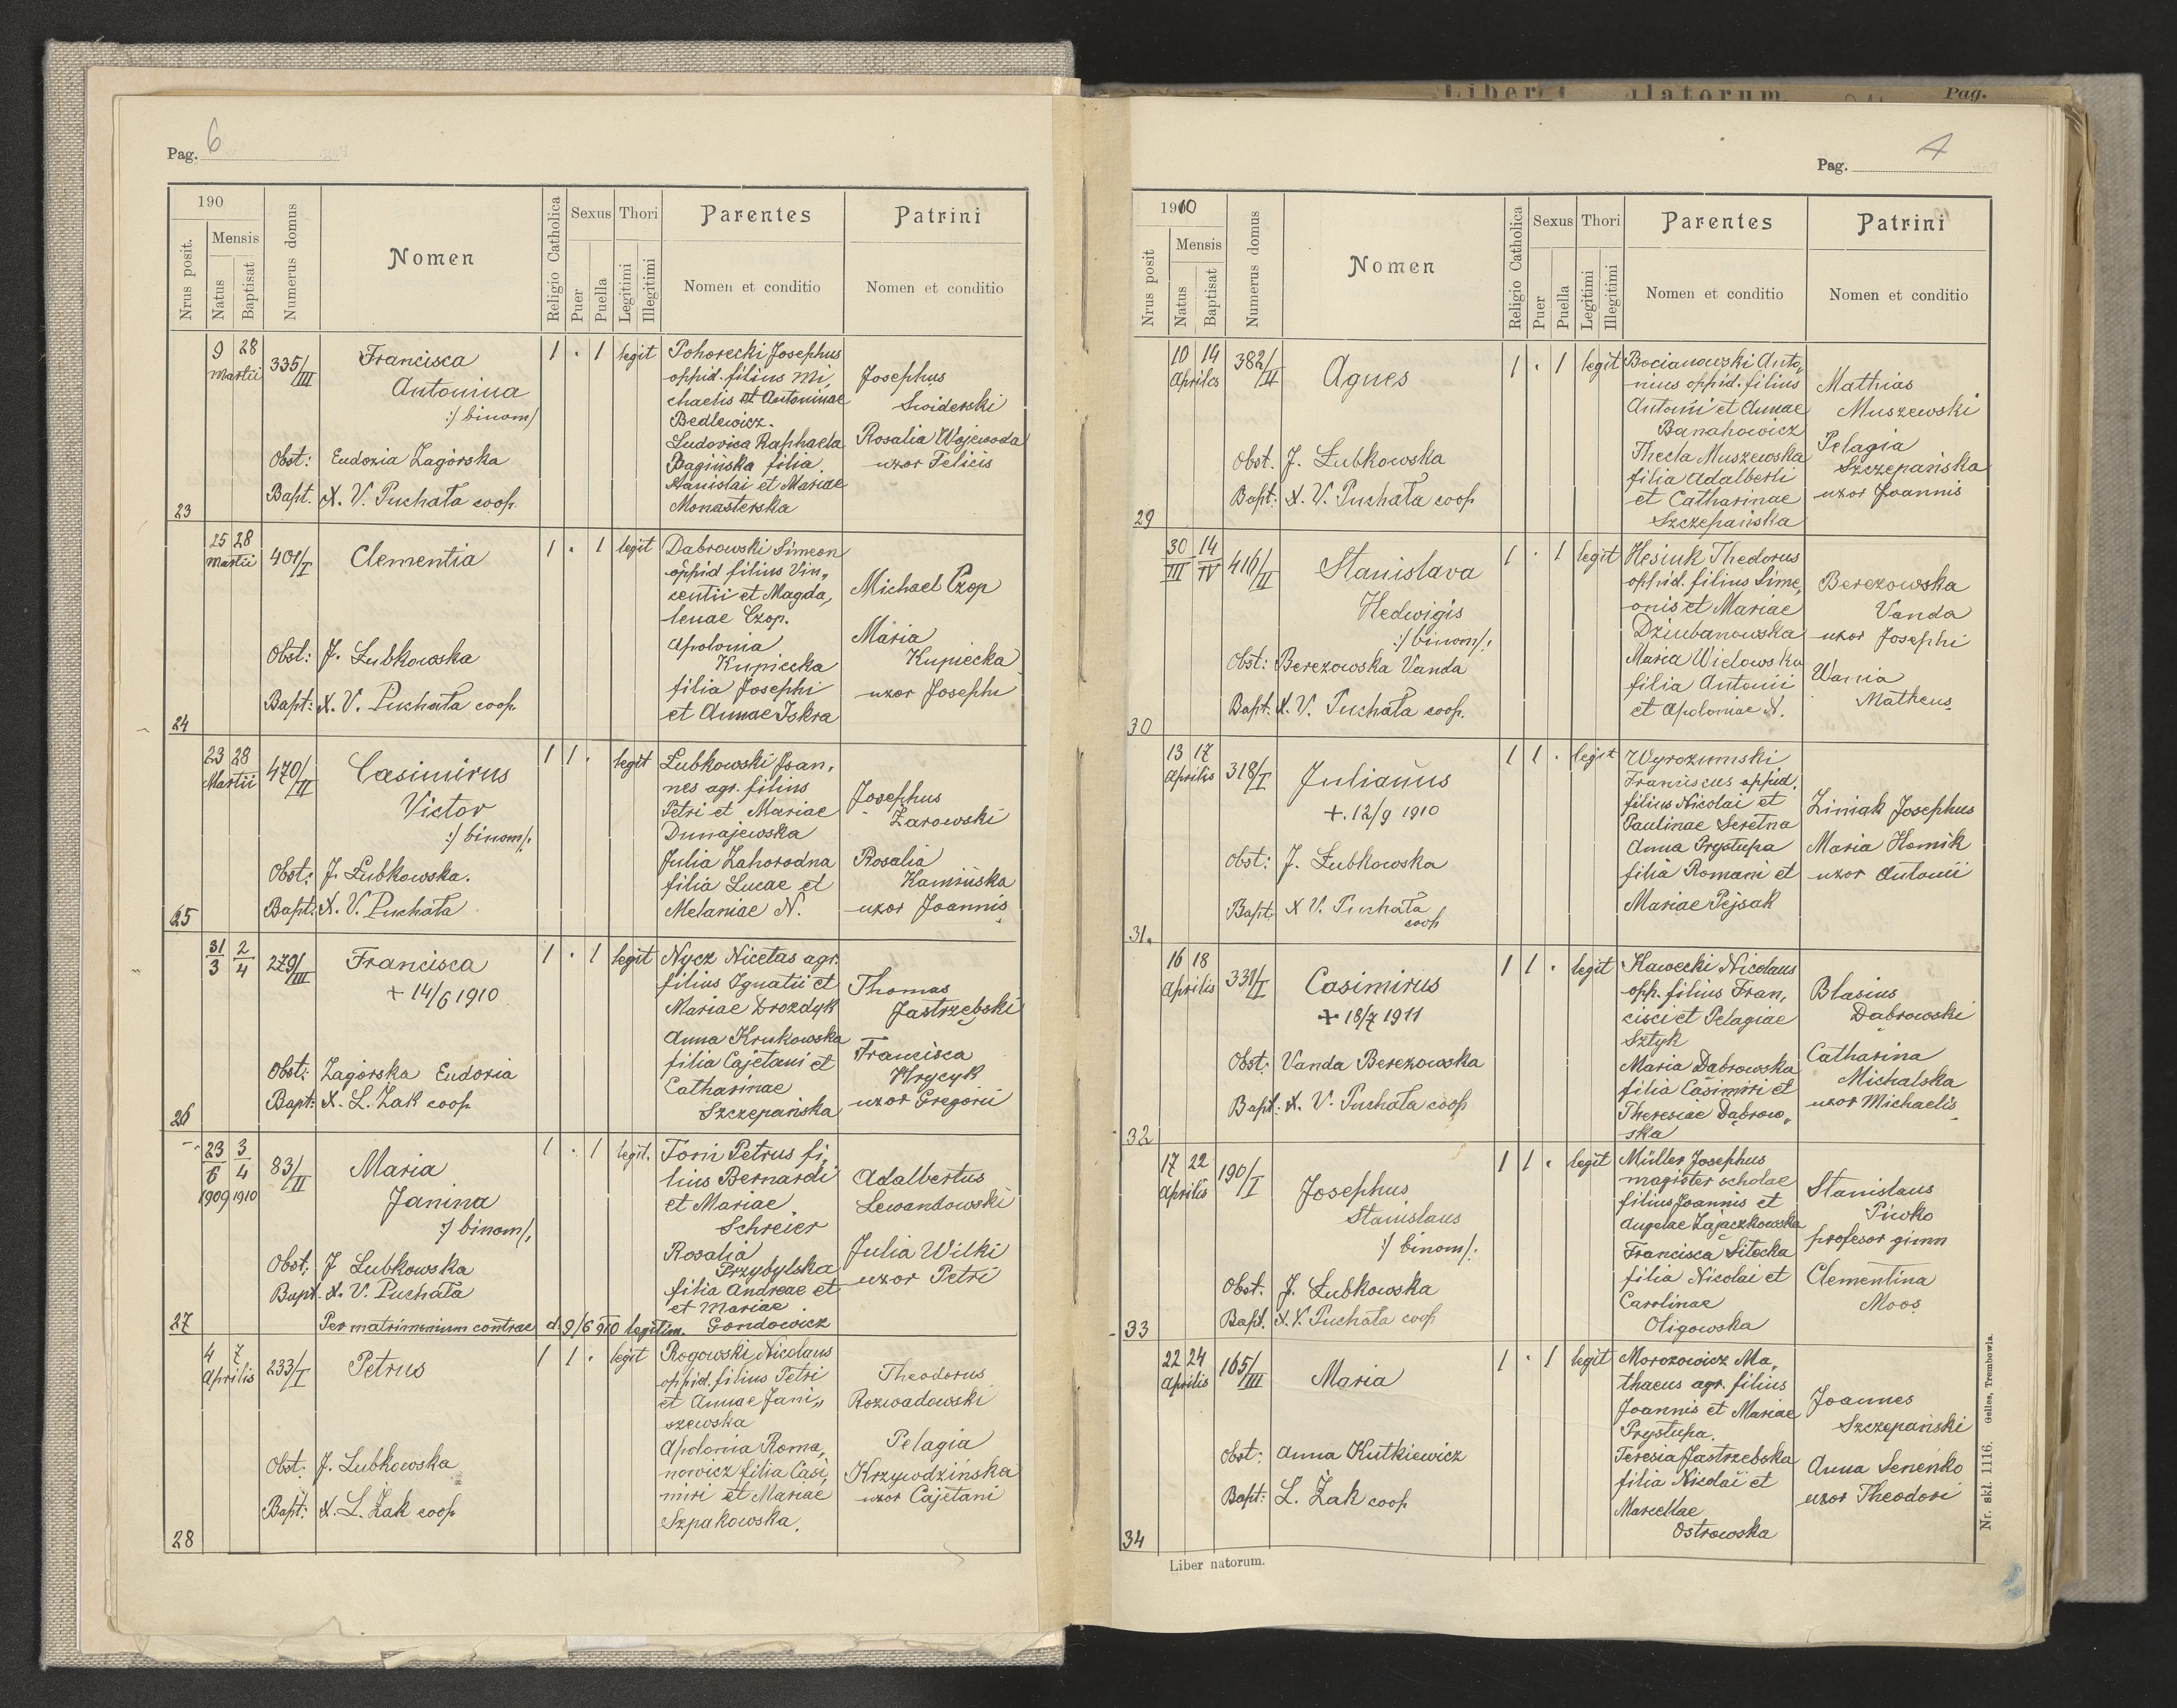 Pag. 6
190
Nrus posit.
Mensis
Natus
Baptisat
Numerus domus
Nomen
Religio Catholica
Sexus
Puer
Puella
Thori
Legitimi
Illegitimi
Parentes
Nomen et conditio
Patrini
Nomen et conditio
23
9 28
Martii
335/III
Francisca
Antonina
:/ binom/
Obst: Eudoxia Zagórska
Bapt. X. V. Puchała coop.
1 . 1 legit
Pohorecki Josephus
oppid. filius Mi,
chaelis et Antoninae
Bedlewicz.
Ludovica Raphaela
Bagińska filia
Stanislai et Mariae
Monasterska
Josephus
Swiderski
Rosalia Wojewoda
uxor Felicis
24
25 28
Martii
401/I
Clementia
Obst: J. Łubkowska
Bapt: X. V. Puchała coop.
1 . 1 legit
Dąbrowski Simeon
oppid filius Vin,,
centii et Magda,
lenae Czop.
Apolonia
Kupiecka
filia Josephi
et Annae Iskra
Michael Czop
Maria
Kupiecka
uxor Josephi
25
23 28
Martii
470/II
Casimirus
Victor
:/ binom/:
Obst: J. Łubkowska.
Bapt: X. V. Puchała
1 1 . legit
Łubkowski Joan,
nes agr. filius
Petri et Mariae
Dunajewska
Julia Zahorodna
filia Lucae et
Melaniae N.
Josephus
Żarowski
Rosalia
Kamińska
uxor Joannis
26
31 2
3 4
279/III
Francisca
+ 14/6 1910
Obst: Zagórska Eudoxia
Bapt: X. L. Żak coop.
1 . 1 legit
Nycz Nicetas agr.
filius Ignatii et
Mariae Drozdyk
Anna Krukowska
filia Cajetani et
Catharinae
Szczepańska
Thomas
Jastrzębski
Francisca
Hrycyk
uxor Gregorii
27
23 3
6 4
1909 1910
83/II
Maria
Janina
:/ binom/:
Obst: J Łubkowska
Bapt. X. V. Puchała
Per matrimonium contrac d 9/6 910 legitim.
1 . 1 legit.
Forin Petrus fi,
lius Bernardi
et Mariae
Schreier
Rosalia
Przybylska
filia Andreae et
et Mariae
Gondowicz
Adalbertus
Lewandowski
Julia Wilki
uxor Petri
28
4 7
Aprilis
233/I
Petrus
Obst: J. Łubkowska
Bapt: X. L. Żak coop.
1 1 . legit
Rogowski Nicolaus
oppid. filius Petri
et Annae Jani,,
szewska
Apolonia Roma,
nowicz filia Casi,
miri et Mariae
Szpakowska.
Theodorus
Rozwadowski
Pelagia
Krzywodzińska
uxor Cajetani
Pag.
Pag.
1910
Nrus posit
Mensis
Natus
Baptisat
Numerus domus
Nomen
Religio Catholica
Sexus
Puer
Puella
Thori
Legitimi
Illegitimi
Parentes
Nomen et conditio
Patrini
Nomen et conditio
29
10 14
Aprilis
382/II
Agnes
Obst. J. Łubkowska
Bapt: X. V. Puchała coop
1 . 1 legit
Bocianowski Anto,,
nius oppid. filius
Antonii et Annae
Banahowicz
Thecla Muszewska
filia Adalberti
et Catharinae
Szczepańska
Mathias
Muszewski
Pelagia
Szczepańska
uxor Joannis
30
30 14
III IV
416/II
Stanislava
Hedwigis
:/ binom/:
Obst: Berezowska Vanda
Bapt: X. V. Puchała coop.
1 . 1 legit
Hesiuk Theodorus
oppid. filius Sime,
onis et Mariae
Dziubanowska
Maria Widowska
filia Antonii
et Apoloniae N.
Berezowska
Vanda
uxor Josephi
Wania
Matheus
31.
13 17
Aprilis
318/I
Julianus
+. 12/9 1910
Obst: J. Łubkowska
Bapt. X V. Puchała
coop
1 1 . legit
Wyrozumski
Franciscus oppid.
filius Nicolai et
Paulinae Seretna
Anna Prystupa
filia Romani et
Mariae Pejsak
Ziniak Josephus
Maria Homik
uxor Antonii
32
16 18
Aprilis
331/I
Casimirus
+ 18/7 1911
Obst: Vanda Berezowska
Bapt: X. V. Puchała coop
1 1 . legit
Kawecki Nicolaus
opp. filius Fran,
cisci et Pelagiae
Sztyk
Maria Dąbrowska
filia Casimiri et
Theresiae Dąbrow,,
ska
Blasius
Dąbrowski
Catharina
Michalska
uxor Michaelis
33
17 22
Aprilis
190/I
Josephus
Stanislaus
:/ binom/:
Obst. J. Łubkowska
Bapt. X. V. Puchała coop
1 1 . legit
Müller Josephus
magister scholae
filius Joannis et
Angelae Zajączkowska
Francisca Sitocka
filia Nicolai et
Carolinae
Oligowska
Stanislaus
Piwko
profesor gimn
Clementina
Moos
34
22 24
Aprilis
165/III
Maria
Obst: Anna Kutkiewicz
Bapt: L. Żak coop.
1 . 1 legit
Morozowicz Ma,
thaeus agr. filius
Joannis et Mariae
Prystupa.
Teresia Jastrzębska
filia Nicolai et
Marcellae
Ostrowska
Joannes
Szczepański
Anna Senenko
uxor Theodori
Liber natorum.
Nr. skł. 1116. Gelles, Trembowla.